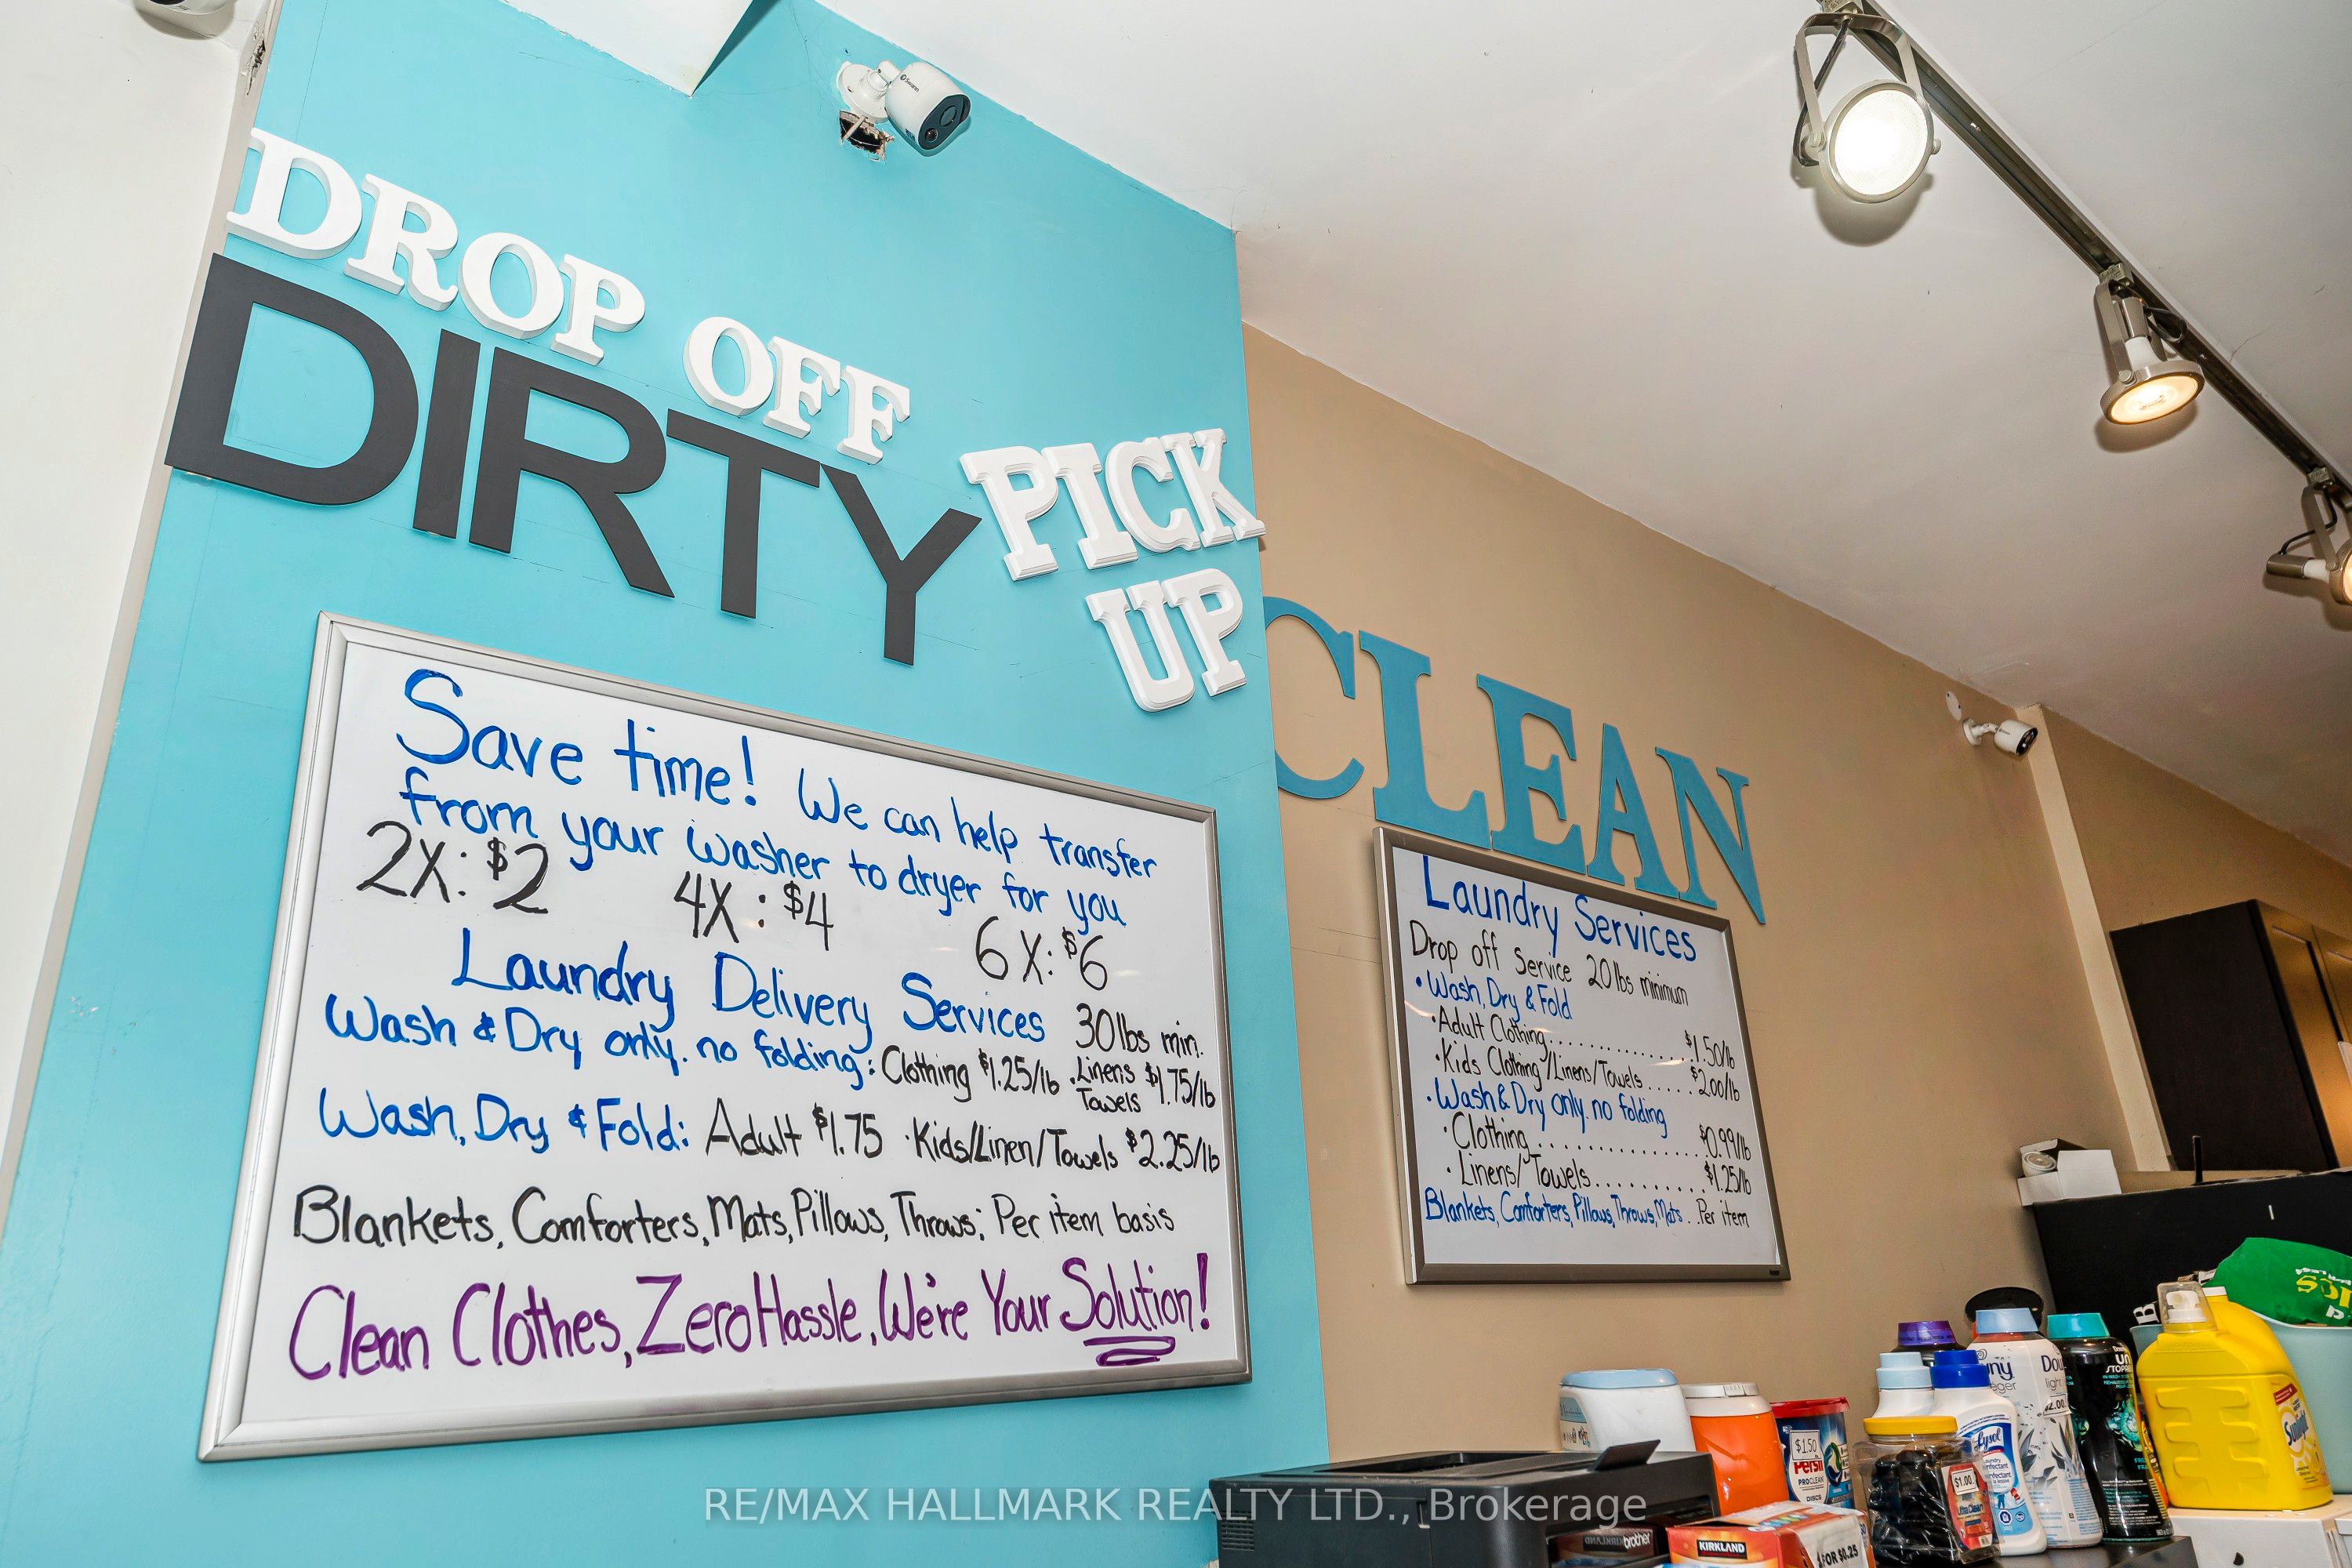 DROP OFF
DIRTY
PICK
UP
CLEAN
Save time! We can help transfer
from your washer to dryer for you
2X: $2 4X: $4 6X: $6
Laundry Delivery Services 30lbs min.
Wash & Dry only. no folding: Clothing $1.25/lb . Linens Towels $1.75/lb
Wash, Dry & Fold: Adult $1.75 · Kids/Linen/Towels $2.25/lb
Blankets, Comforters, Mats, Pillows, Throws: Per item basis
Clean Clothes, Zero Hassle, We're Your Solution!
Laundry Services
Drop off Service 20lbs minimum
• Wash, Dry & Fold
· Adult Clothing............... $1.50/lb
· Kids Clothing/Linens/Towels..... $2.00/lb
· Wash & Dry only. no folding
· Clothing............... $0.99/lb
· Linens/Towels.......... $1.25/lb
Blankets, Comforters, Pillows, Throws, Mats... Per item
Swann
Downy
light
UN
STOPA
Lysol
Sunlight
$2.00
$1.50
Persil
PROCLEAN
DISCS
$1.00
brother
KIRKLAND
FOR $0.25
RE/MAX HALLMARK REALTY LTD., Brokerage